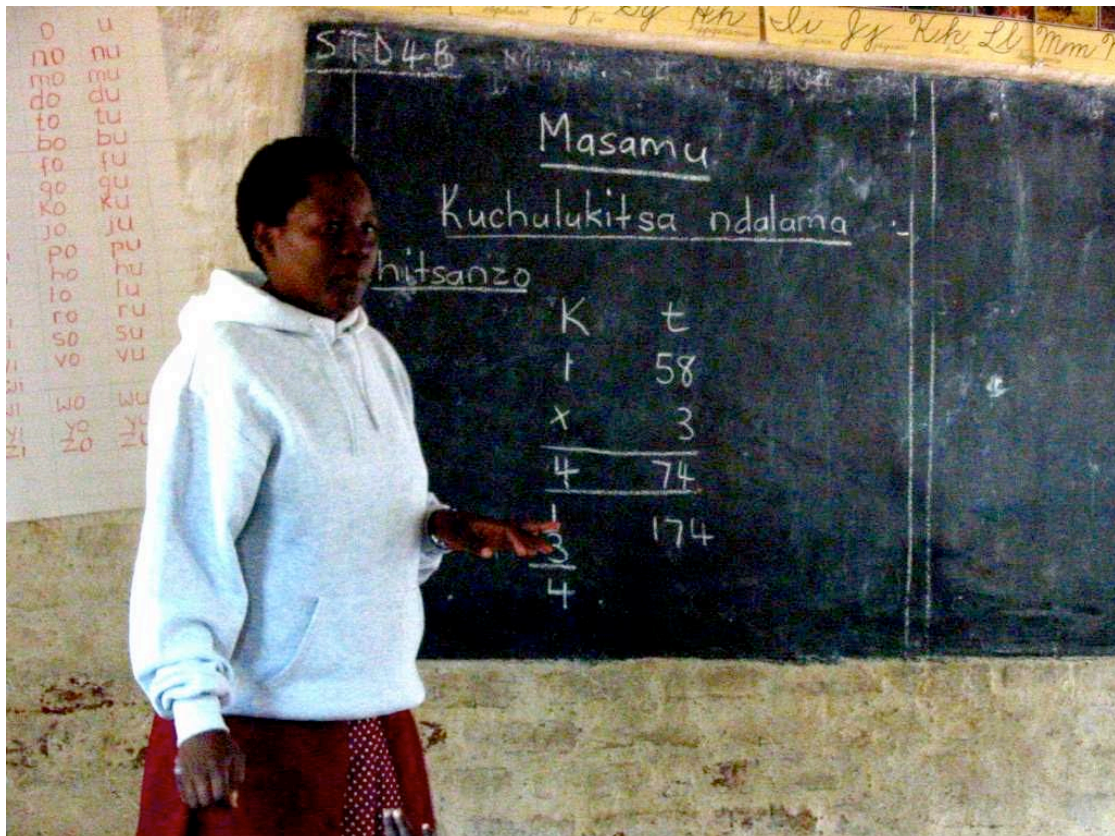 o u
no nu
mo mu
do du
to tu
bo bu
fo fu
go gu
ko ku
jo ju
po pu
ho hu
lo lu
ro ru
so su
vo vu
wo wu
yi yo yu
zi zo zu
Hh Ii Jj Kk Ll Mm
STD4B
Masamu
Kuchulukitsa ndalama :-
hitsanzo
K t
1 58
x 3
4 74
1 174
3
4